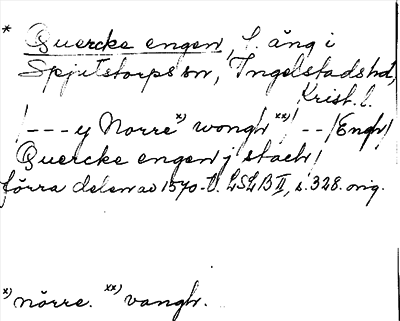 * Quercke engen, f. äng i
Spjutstorps sn, Ingelstads hd,
Krist. l.
/--- y Norre x) wongh xx)/ --/Engh/
Quercke engen j stach/
förra delen av 1570-t. LSLB II, s. 328. orig.
x) nörre. xx) vangh.